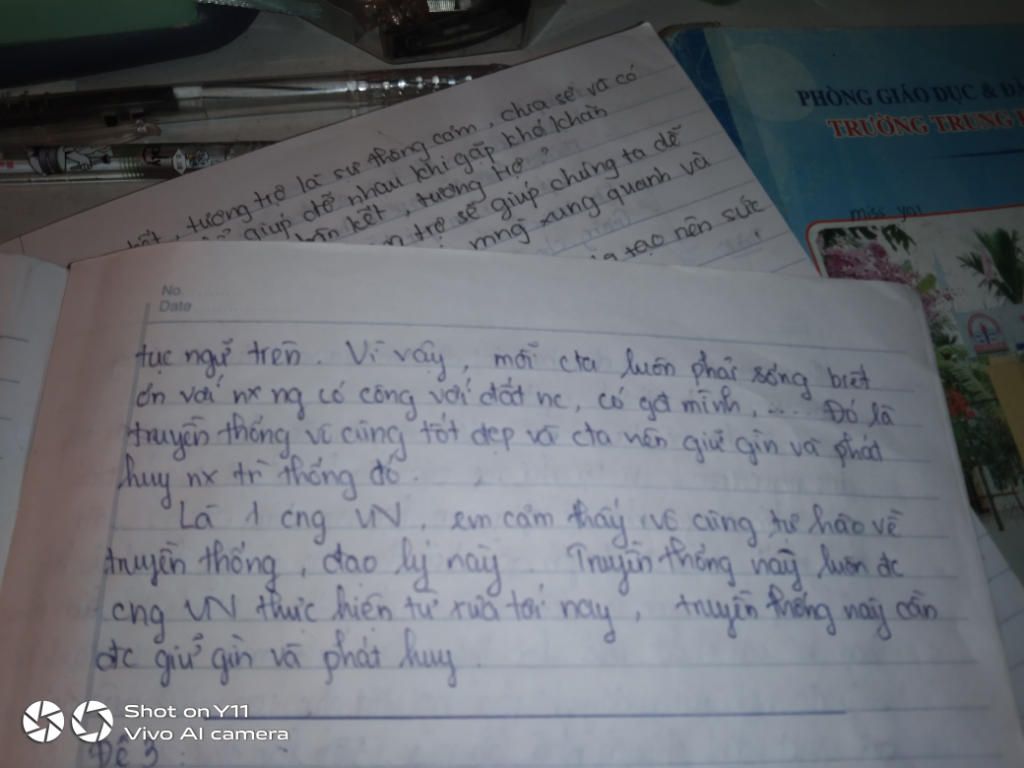 PHÒNG GIÁO DỤC & ĐÀ
TRƯỜNG TRUNG
miss you
tương trợ là sự thông cảm, chia sẻ và có
giúp đỡ nhau khi gặp khó khăn
kết, tương trợ?
trợ sẽ giúp chúng ta dễ
mng xung quanh và
tạo nên sức
No.
Date
tục ngữ trên. Vì vậy, mỗi cta luôn phải sống biết
ơn với nx ng có công với đất nc, có gđ mình, .... Đó là
truyền thống vô cùng tốt đẹp và cta nên giữ gìn và phát
huy nx tr thống đó.
Là 1 cng VN, em cảm thấy vô cùng tự hào về
truyền thống, đạo lý này. Truyền thống này luôn đc
cng VN thực hiện từ xưa tới nay, truyền thống này cần
đc giữ gìn và phát huy.
Đề 3:
Shot on Y11
Vivo AI camera